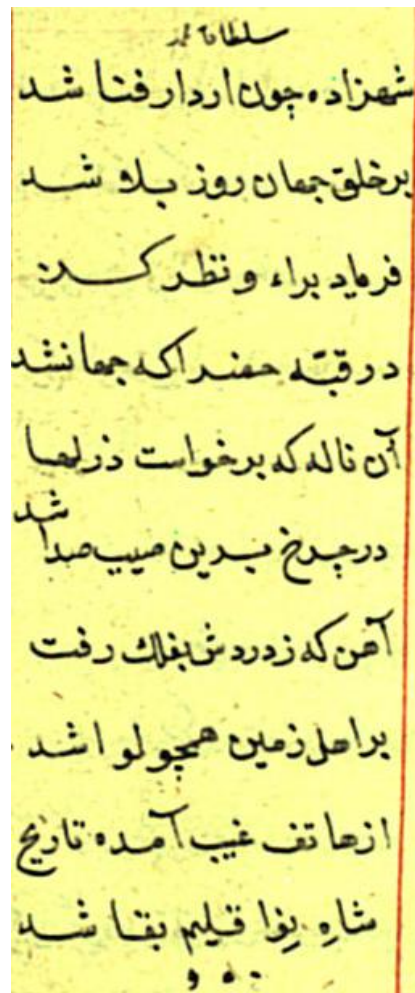 سلطان محمد
شهزاده چون از دار فنا شد
بر خلق جهان روز بلا شد
فریاد براء و نظر کر
در قبّه حضرا که جها نشد
آن ناله که برخواست ذ زلها
در چرخ برین صیب صدا شد
آهن که ز دردش بفلك رفت
بر اهل زمین همچو لوا شد
از هاتف غیب آمده تاریخ
شاهِ بِوا قلیم بقا شد